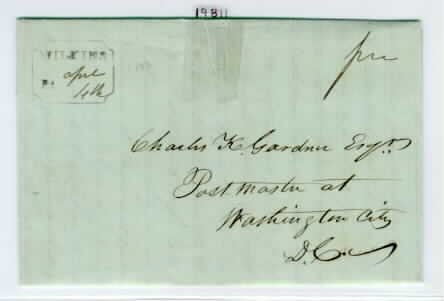 19811
free
apl
4th
Charles K. Gardner Esqr.
Post master at
Washington City
D.C.